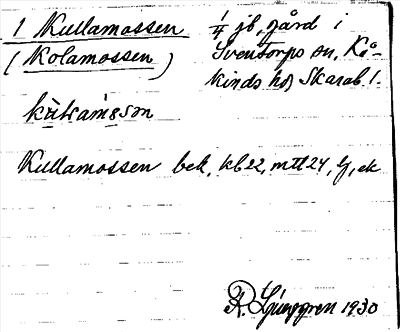 1 Kullamossen
(Kolamossen)
1/4 jb, gård i
Sventorps sn, Kå-
kinds hd Skarab. l.
Kullamossen bek, kb 22, mtl 24, lj, ek
R. Ljunggren 1930